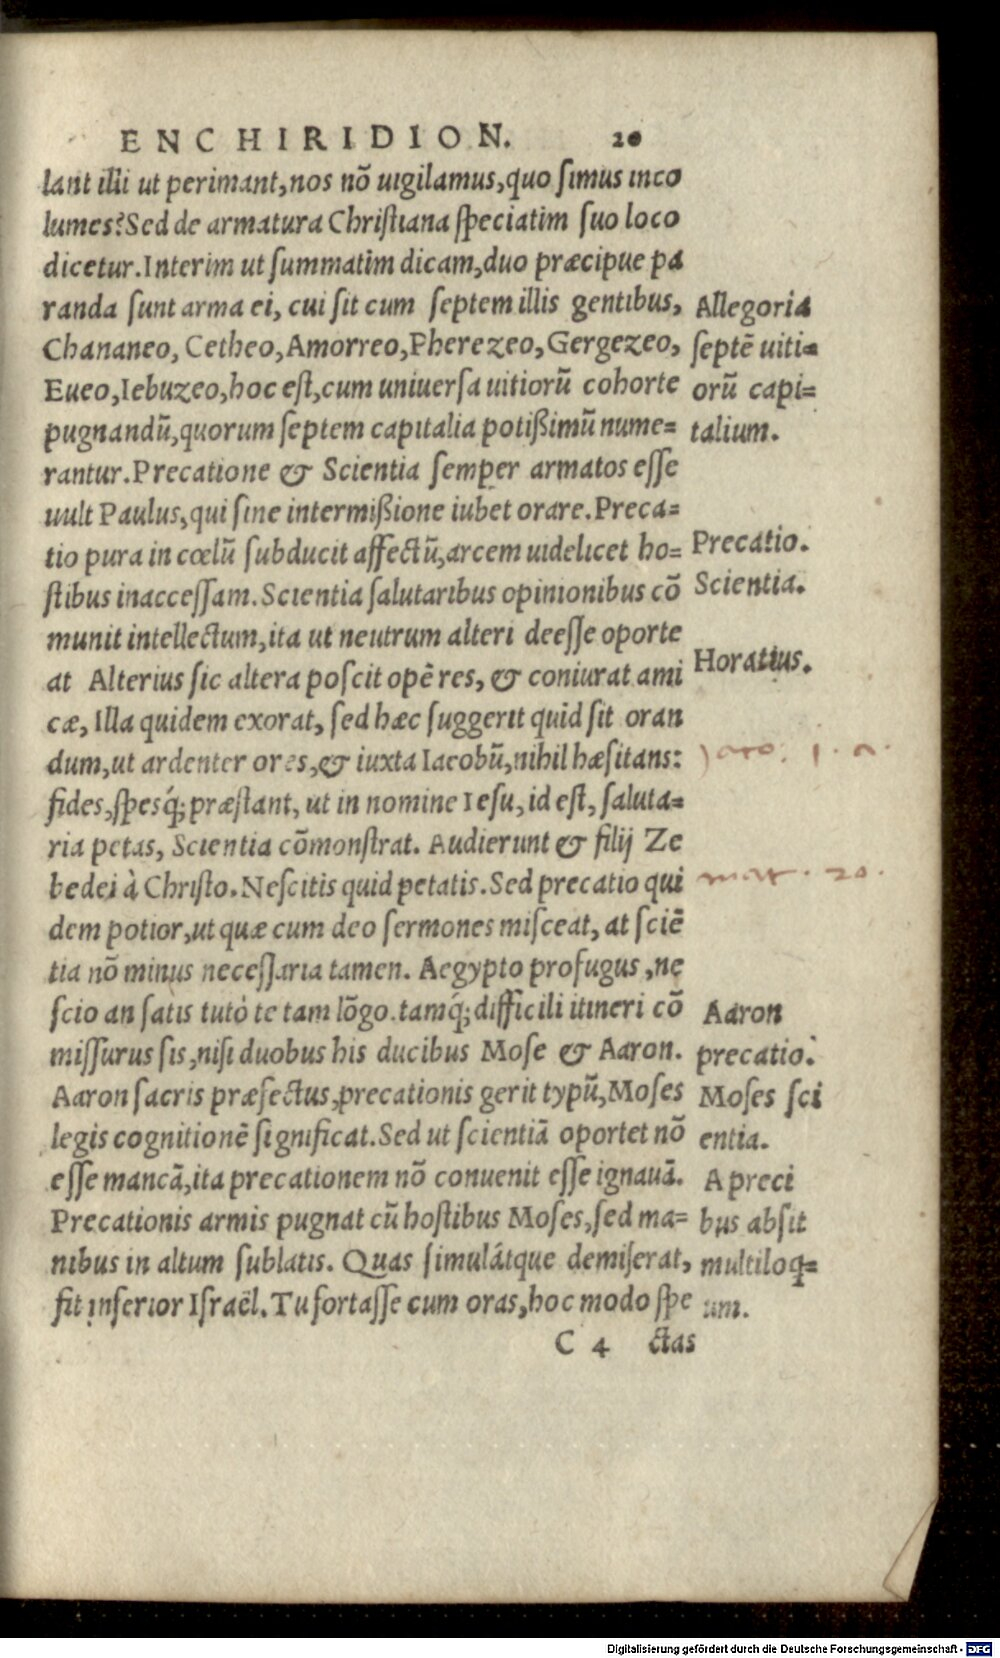 ENCHIRIDION. 20
lant illi ut perimant, nos nõ uigilamus, quo simus inco
lumes? Sed de armatura Christiana speciatim suo loco
dicetur. Interim ut summatim dicam, duo præcipue pa
randa sunt arma ei, cui sit cum septem illis gentibus,
Chananeo, Cetheo, Amorreo, Pherezeo, Gergezeo,
Eueo, Iebuzeo, hoc est, cum uniuersa uitiorũ cohorte
pugnandũ, quorum septem capitalia potißimũ nume=
rantur. Precatione & Scientia semper armatos esse
uult Paulus, qui sine intermißione iubet orare. Preca=
tio pura in cœlũ subducit affectũ, arcem uidelicet ho=
stibus inaccessam. Scientia salutaribus opinionibus cõ
munit intellectum, ita ut neutrum alteri deesse oporte
at Alterius sic altera poscit opẽ res, & coniurat ami
cæ, Illa quidem exorat, sed hæc suggerit quid sit oran
dum, ut ardenter ores, & iuxta Iacobũ, nihil hæsitans:
fides, spesq́; præstant, ut in nomine Iesu, id est, saluta=
ria petas, Scientia cõmonstrat. Audierunt & filij Ze
bedei à Christo. Nescitis quid petatis. Sed precatio qui
dem potior, ut quæ cum deo sermones misceat, at sciẽ
tia nõ minus necessaria tamen. Aegypto profugus, ne
scio an satis tutò te tam lõgo. tamq́; difficili itineri cõ
missurus sis, nisi duobus his ducibus Mose & Aaron.
Aaron sacris præfectus, precationis gerit typũ, Moses
legis cognitionẽ significat. Sed ut scientiã oportet nõ
esse mancã, ita precationem nõ conuenit esse ignauã.
Precationis armis pugnat cũ hostibus Moses, sed ma=
nibus in altum sublatis. Quas simulátque demiserat,
fit inferior Israël. Tu fortasse cum oras, hoc modo spe
C 4 ctas
Allegoria
septẽ uiti=
orũ capi=
talium.
Precatio.
Scientia.
Horatius.
Jaco. 1. a.
mat. 20.
Aaron
precatio.
Moses sci
entia.
A preci
bus absit
multiloq̃=
um.
Digitalisierung gefördert durch die Deutsche Forschungsgemeinschaft - DFG